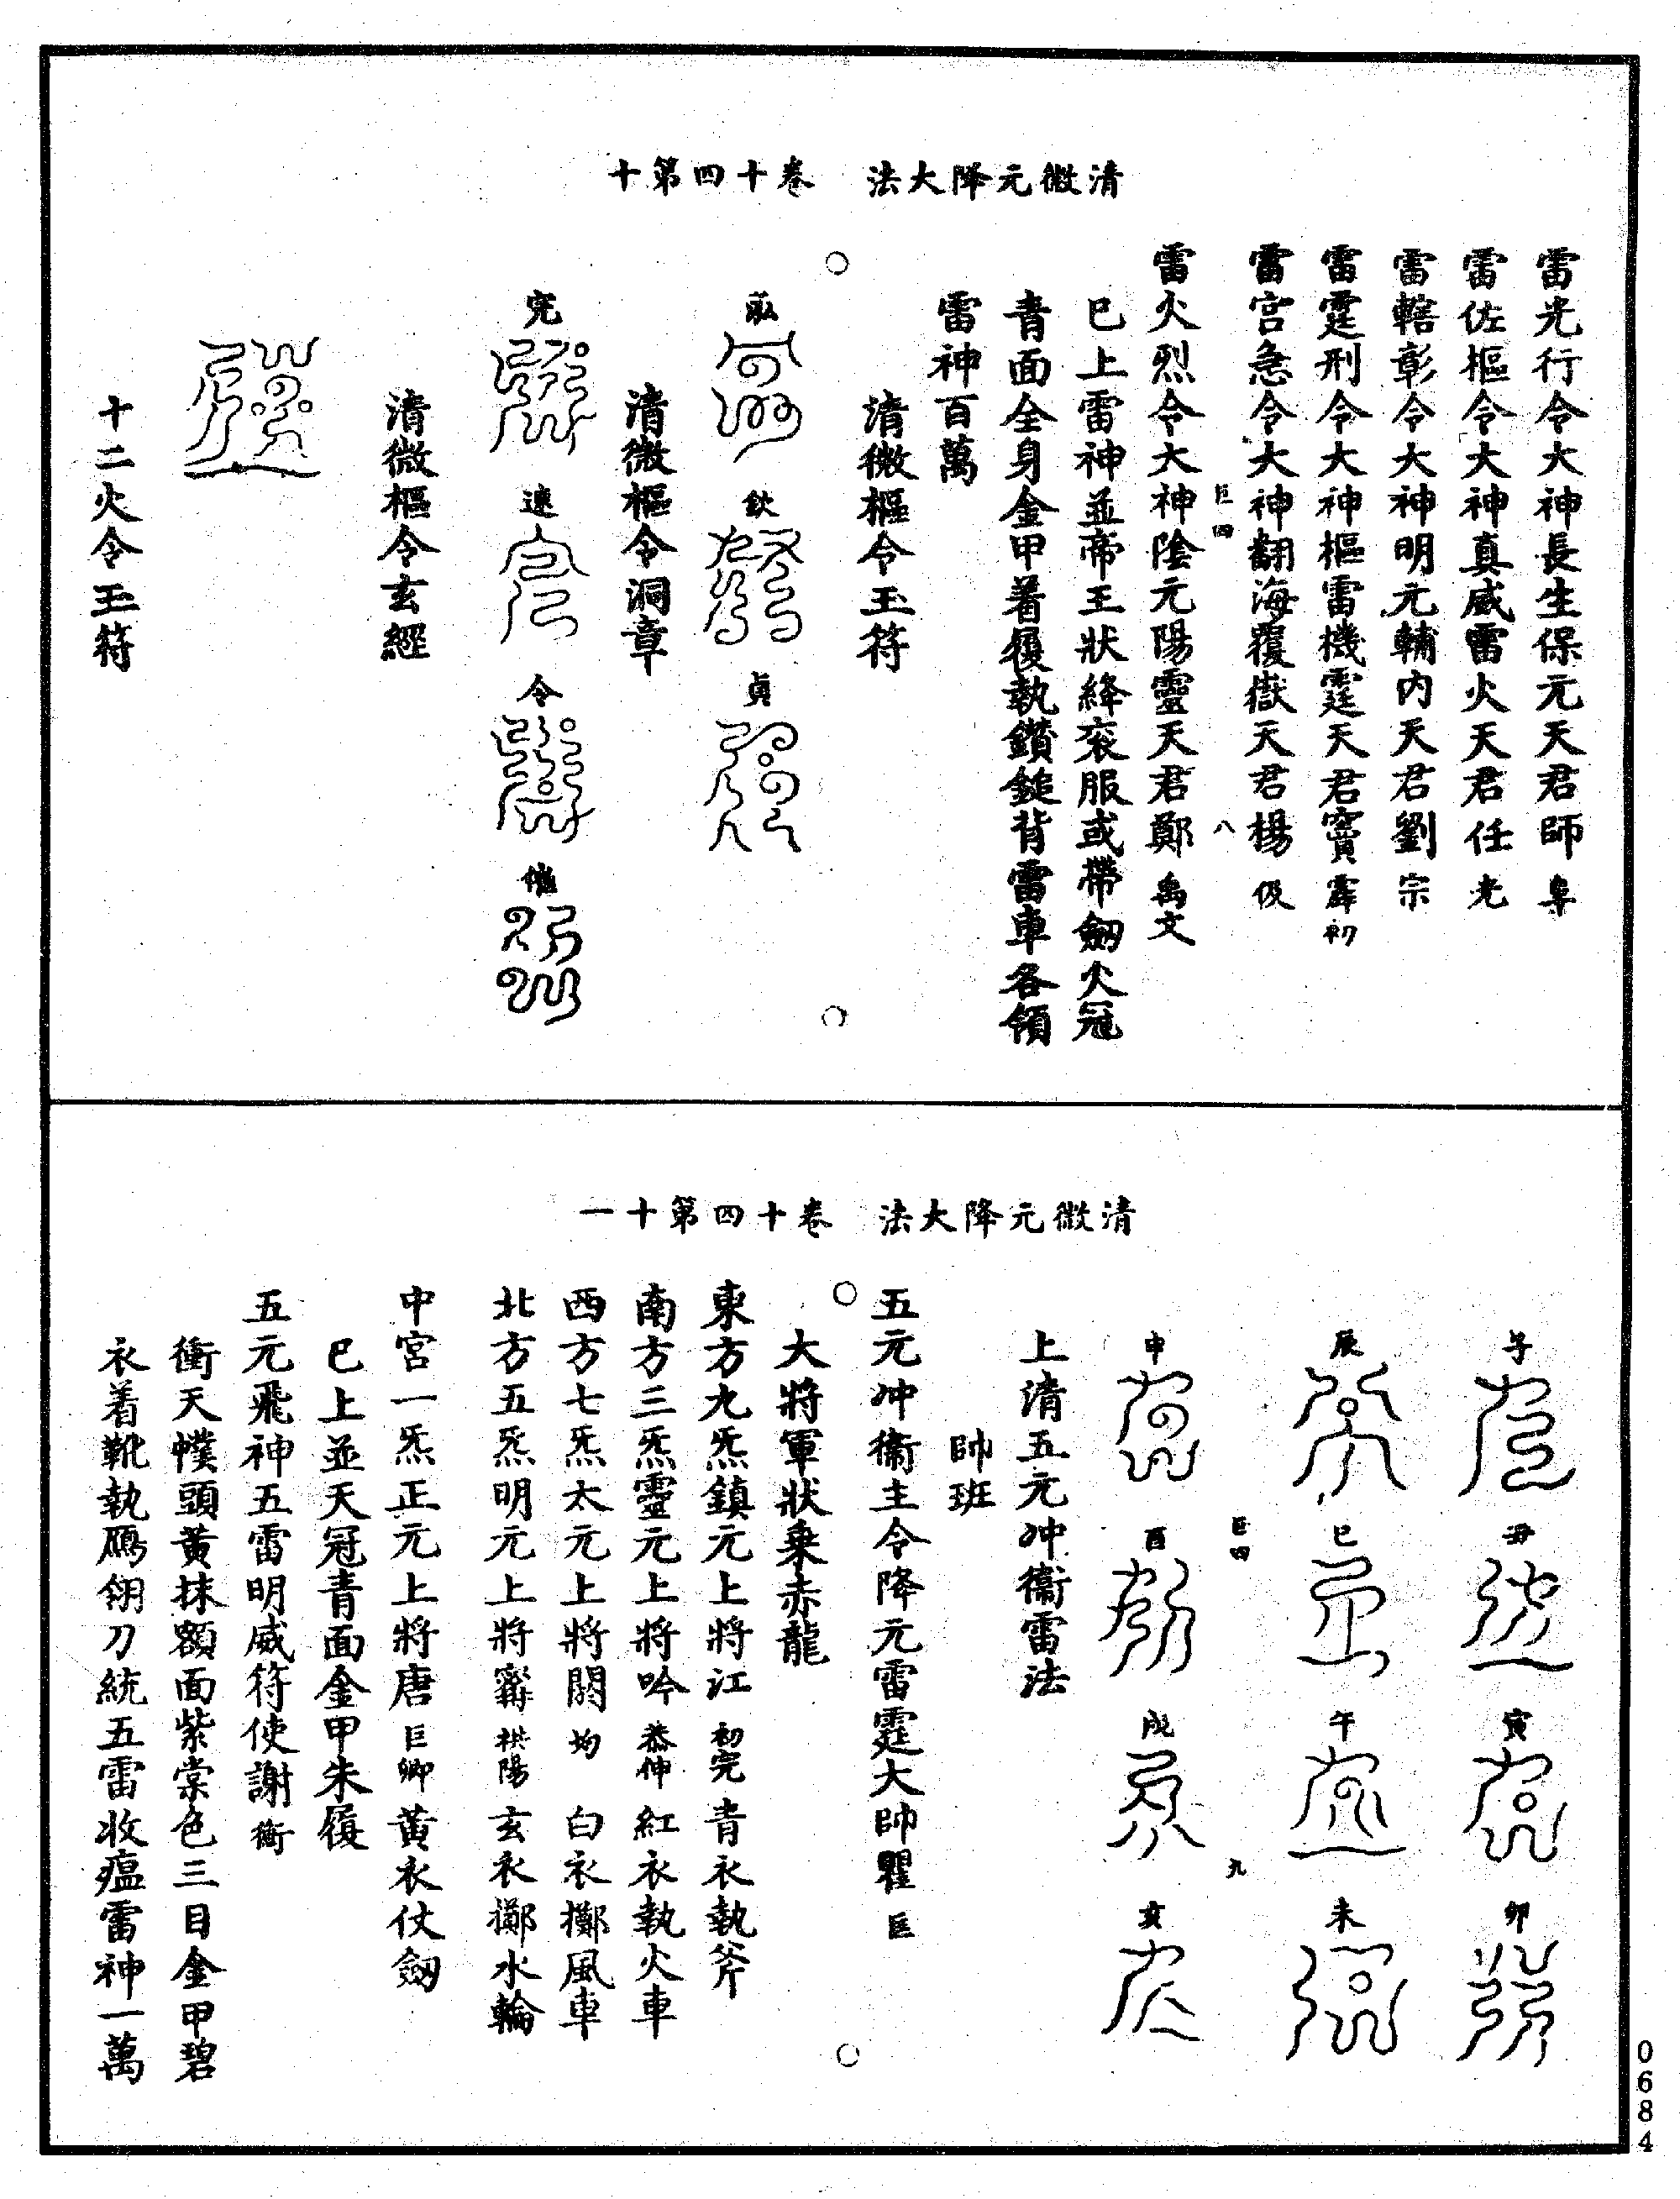 清微元降大法　卷十四第十
雷光行令大神長生保元天君師阜
雷佐樞令大神真威雷火天君任光
雷轄彰令大神明元輔內天君劉宗
雷霆刑令大神樞雷機霆天君竇霹初
雷宮急令大神翻海覆嶽天君楊伋
巨四　八
雷火烈令大神陰元陽靈天君鄭禹文
巳上雷神並帝王狀絳衮服或帶劒火冠
青面全身金甲着履執鑽鎚背雷車各領
雷神百萬
清微樞令玉符
欽
貞
清微樞令洞章
完
速
令
催
清微樞令玄經
十二火令玉符
清微元降大法　卷十四第十一
子
丑
寅
卯
辰
巳
午
未
巨四　九
申
酉
戌
亥
上清五元冲衞雷法
帥班
五元冲衞主令降元雷霆大帥瞿　巨
大將軍狀乗赤龍
東方九炁鎮元上將江初完青衣執斧
南方三炁靈元上將吟恭伸紅衣執火車
西方七炁太元上將闕均白衣擲風車
北方五炁明元上將甯拱陽玄衣擲水輪
中宮一炁正元上將唐巨卿黃衣仗劒
巳上並天冠青面金甲朱履
五元飛神五雷明威符使謝衝
衝天幞頭黃抹額面紫棠色三目金甲碧
衣着靴執鴈翎刀統五雷收瘟雷神一萬
0684